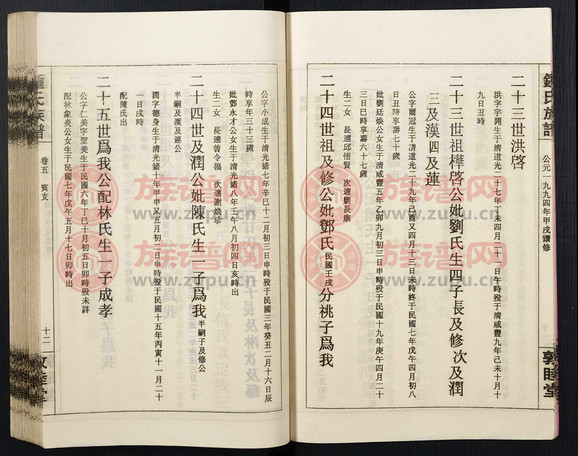 鍾氏族譜
公元一九九四年甲戌續修
敦睦堂
二十三世洪啓
洪字宇開生于清道光二十七年丁未四月二十一日午時歿于清咸豐九年己未十月十
九日丑時
二十三世祖樺啓公妣劉氏生四子長及修次及潤
三及漢四及蓮
公字爾冠生于清道光二十九年己酉又四月十三日未時終于民國七年戊午四月初八
日丑時享壽七十歲
妣劉廷煥公女生于清咸豐五年乙卯九月初三日申時歿于民國十九年庚午四月二十
三日巳時享壽六十七歲
生二女 長適邱悟賢 次適劉長康
二十四世祖及修公妣鄧氏民國壬戌分祧子爲我
公字小成生于清光緒七年辛巳十二月初三日申時歿于民國三年癸丑二月十六日辰
時享年三十三歲
妣鄧永才公女生于清光緒八年壬午八月初四日亥時出
生二女 長適曾令福 次適謝煥珍
二十四世及潤公妣陳氏生一子爲我半嗣子及修公
半嗣及漢及蓮公
潤字德身生于清光緒十年甲申又五月初三日申時歿于民國十五年丙寅十一月二十
一日戌時
配陳氏出
二十五世爲我公配林氏生一子成孝
公字仁美字聖美生于民國六年丁巳十月初五日卯時歿未詳
配林象炎公女生于民國七年戊午五月十七日卯時出
鍾氏族譜
卷五 賓支
十二
敦睦堂
族谱网
www.zupu.cn